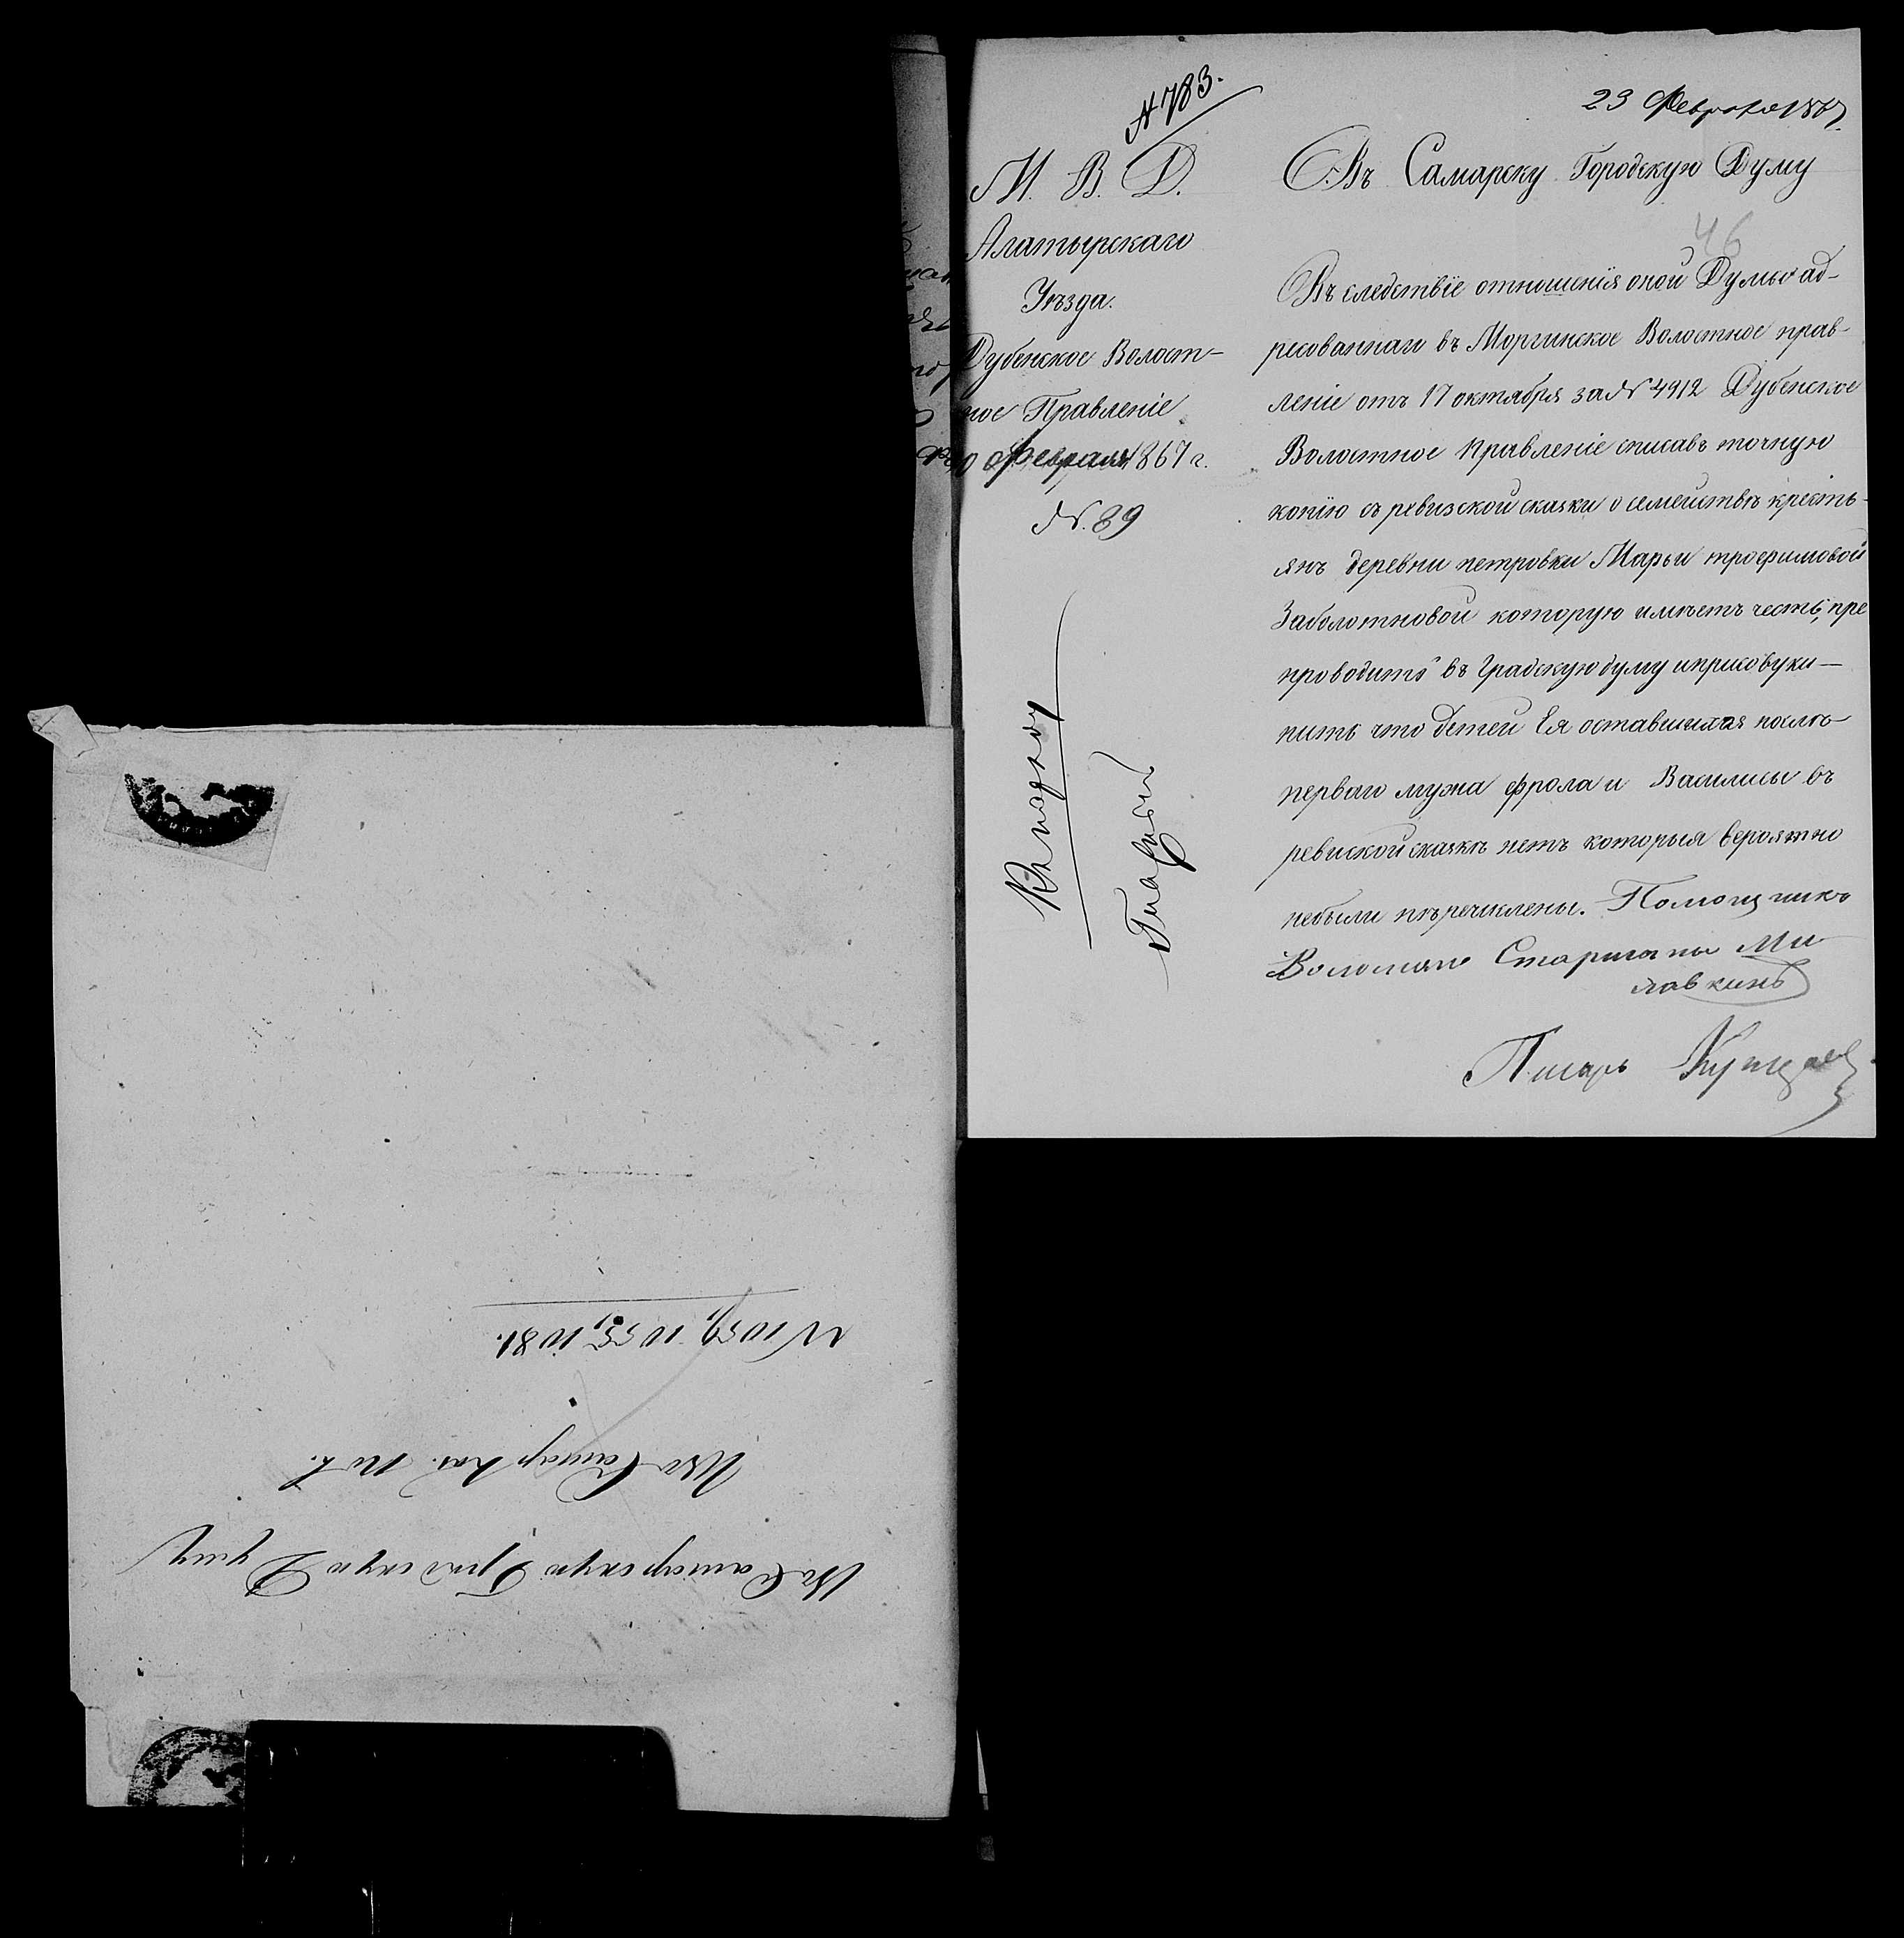 № 783.
23 Февраля 1867
М. В. Д.
Алатырскаго
Уѣзда.
Дубенское Волост-
ное Правленіе
Февраля 1867 г.
№. 89
Въ Самарску Городскую Думу
46
Въ следствіе отношенія оной Думы ад-
ресованнаго въ Моргинское Волостное прав-
леніе отъ 17 октября за № 4912 Дубенское
Волостное Правленіе списавъ точную
копію съ ревизской сказки о семействѣ кресть-
янъ деревни петровки Марьи трофимовой
Заболотновой которую имѣетъ честь, пре
проводить въ Градскую думу и присовуки-
пить что детей Ея оставшихся послѣ
перваго мужа фрола и Василисы въ
ревиской сказкѣ нетъ которыя вероятно
небыли пѣречислены. Помощникъ
Волостнаго Старшины Ми
лавкинъ
Писарь
Въ Самарскую Градскую Думу
№ 1059, 1055, 1081.